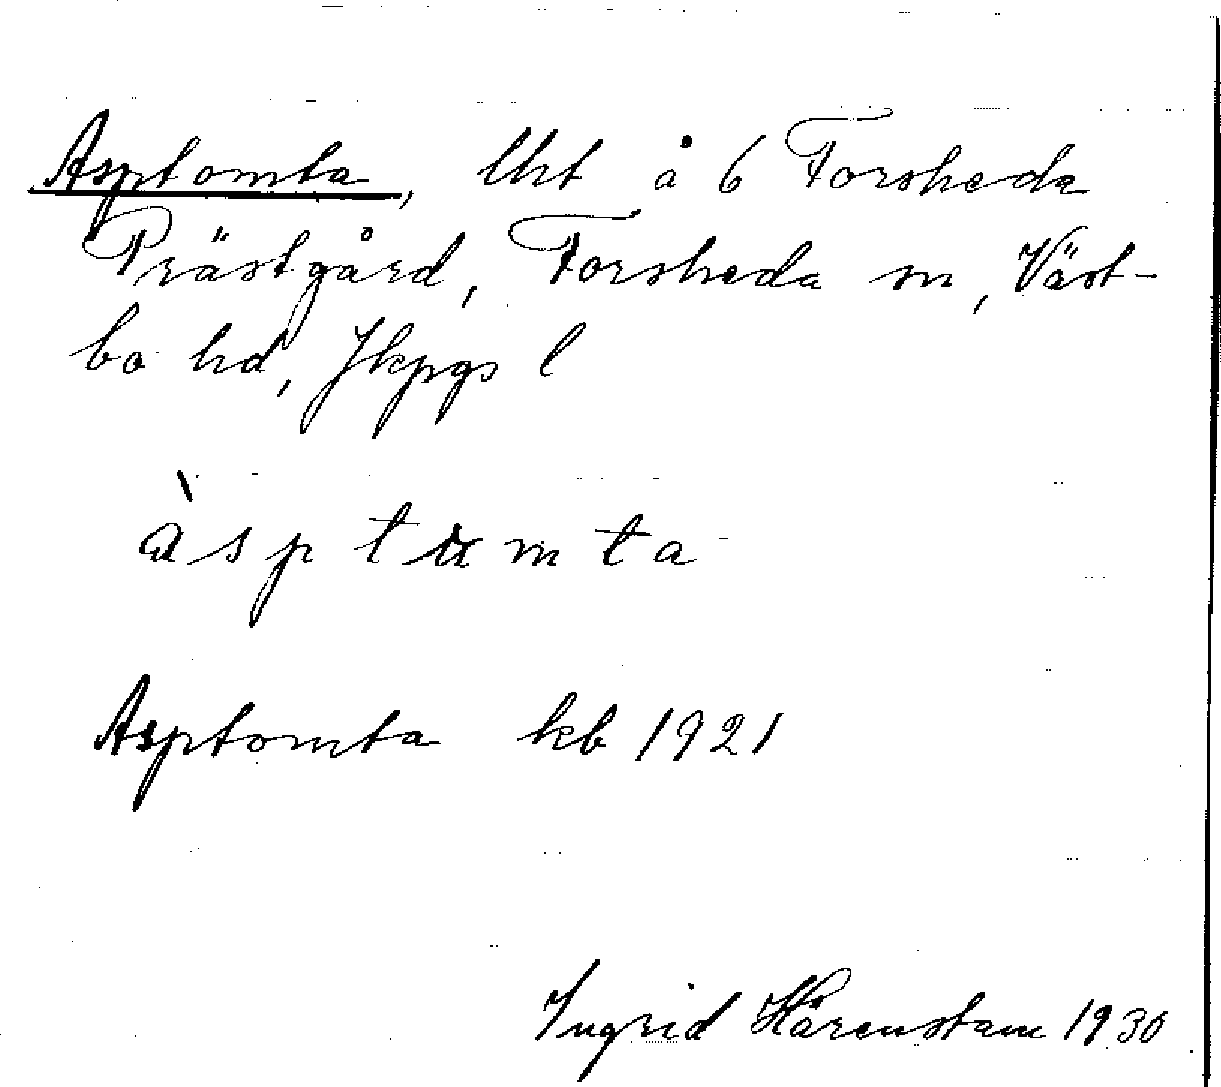 Asptomta, lht å 6 Forsheda
Prästgård, Forsheda sn, Väst-
bo hd, Jkpgs l
àsptωmta
Asptomta kb 1921
Ingrid Härenstam 1930